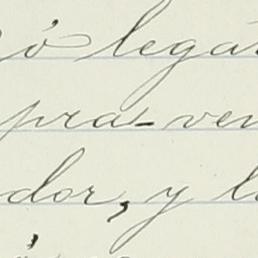 ó lega
pra-ven
dor, y l